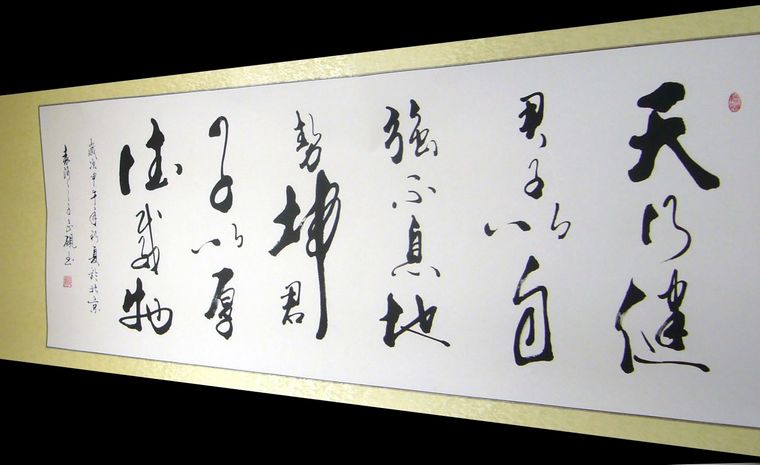 天行健
君子以自
强不息地
势坤君
子以厚
德载物
岁次甲午年初夏於北京